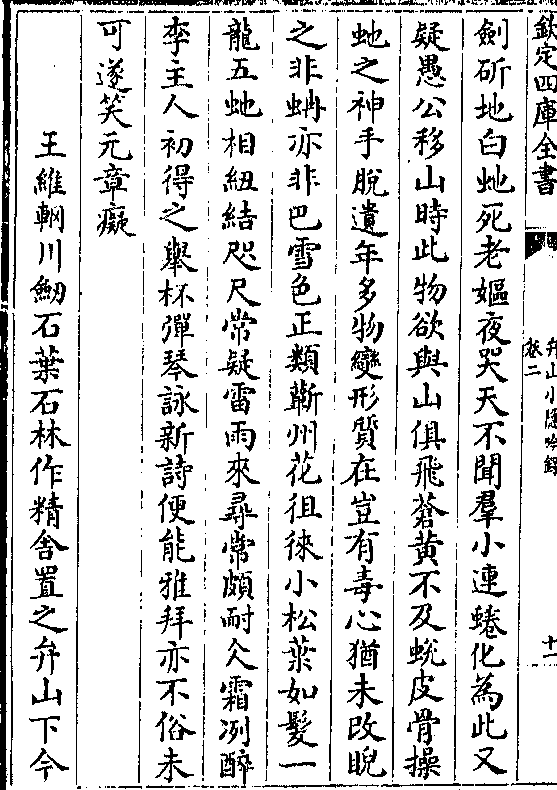 欽定四庫全書
弁山小隱吟録
卷二
十一
劍斫地白虵死老嫗夜哭天不聞羣小連蜷化為此又
疑愚公移山時此物欲與山俱飛蒼黃不及蛻皮骨操
虵之神手脫遺年多物變形質在豈有毒心猶未改睨
之非蚺亦非巴雪色正類蘄州花徂徠小松葉如髮一
龍五虵相紐結咫尺常疑雷雨來尋常頗耐久霜冽醉
李主人初得之舉杯彈琴詠新詩便能雅拜亦不俗未
可遂笑元章癡
王維輞川𠠎石葉石林作精舍置之弁山下今